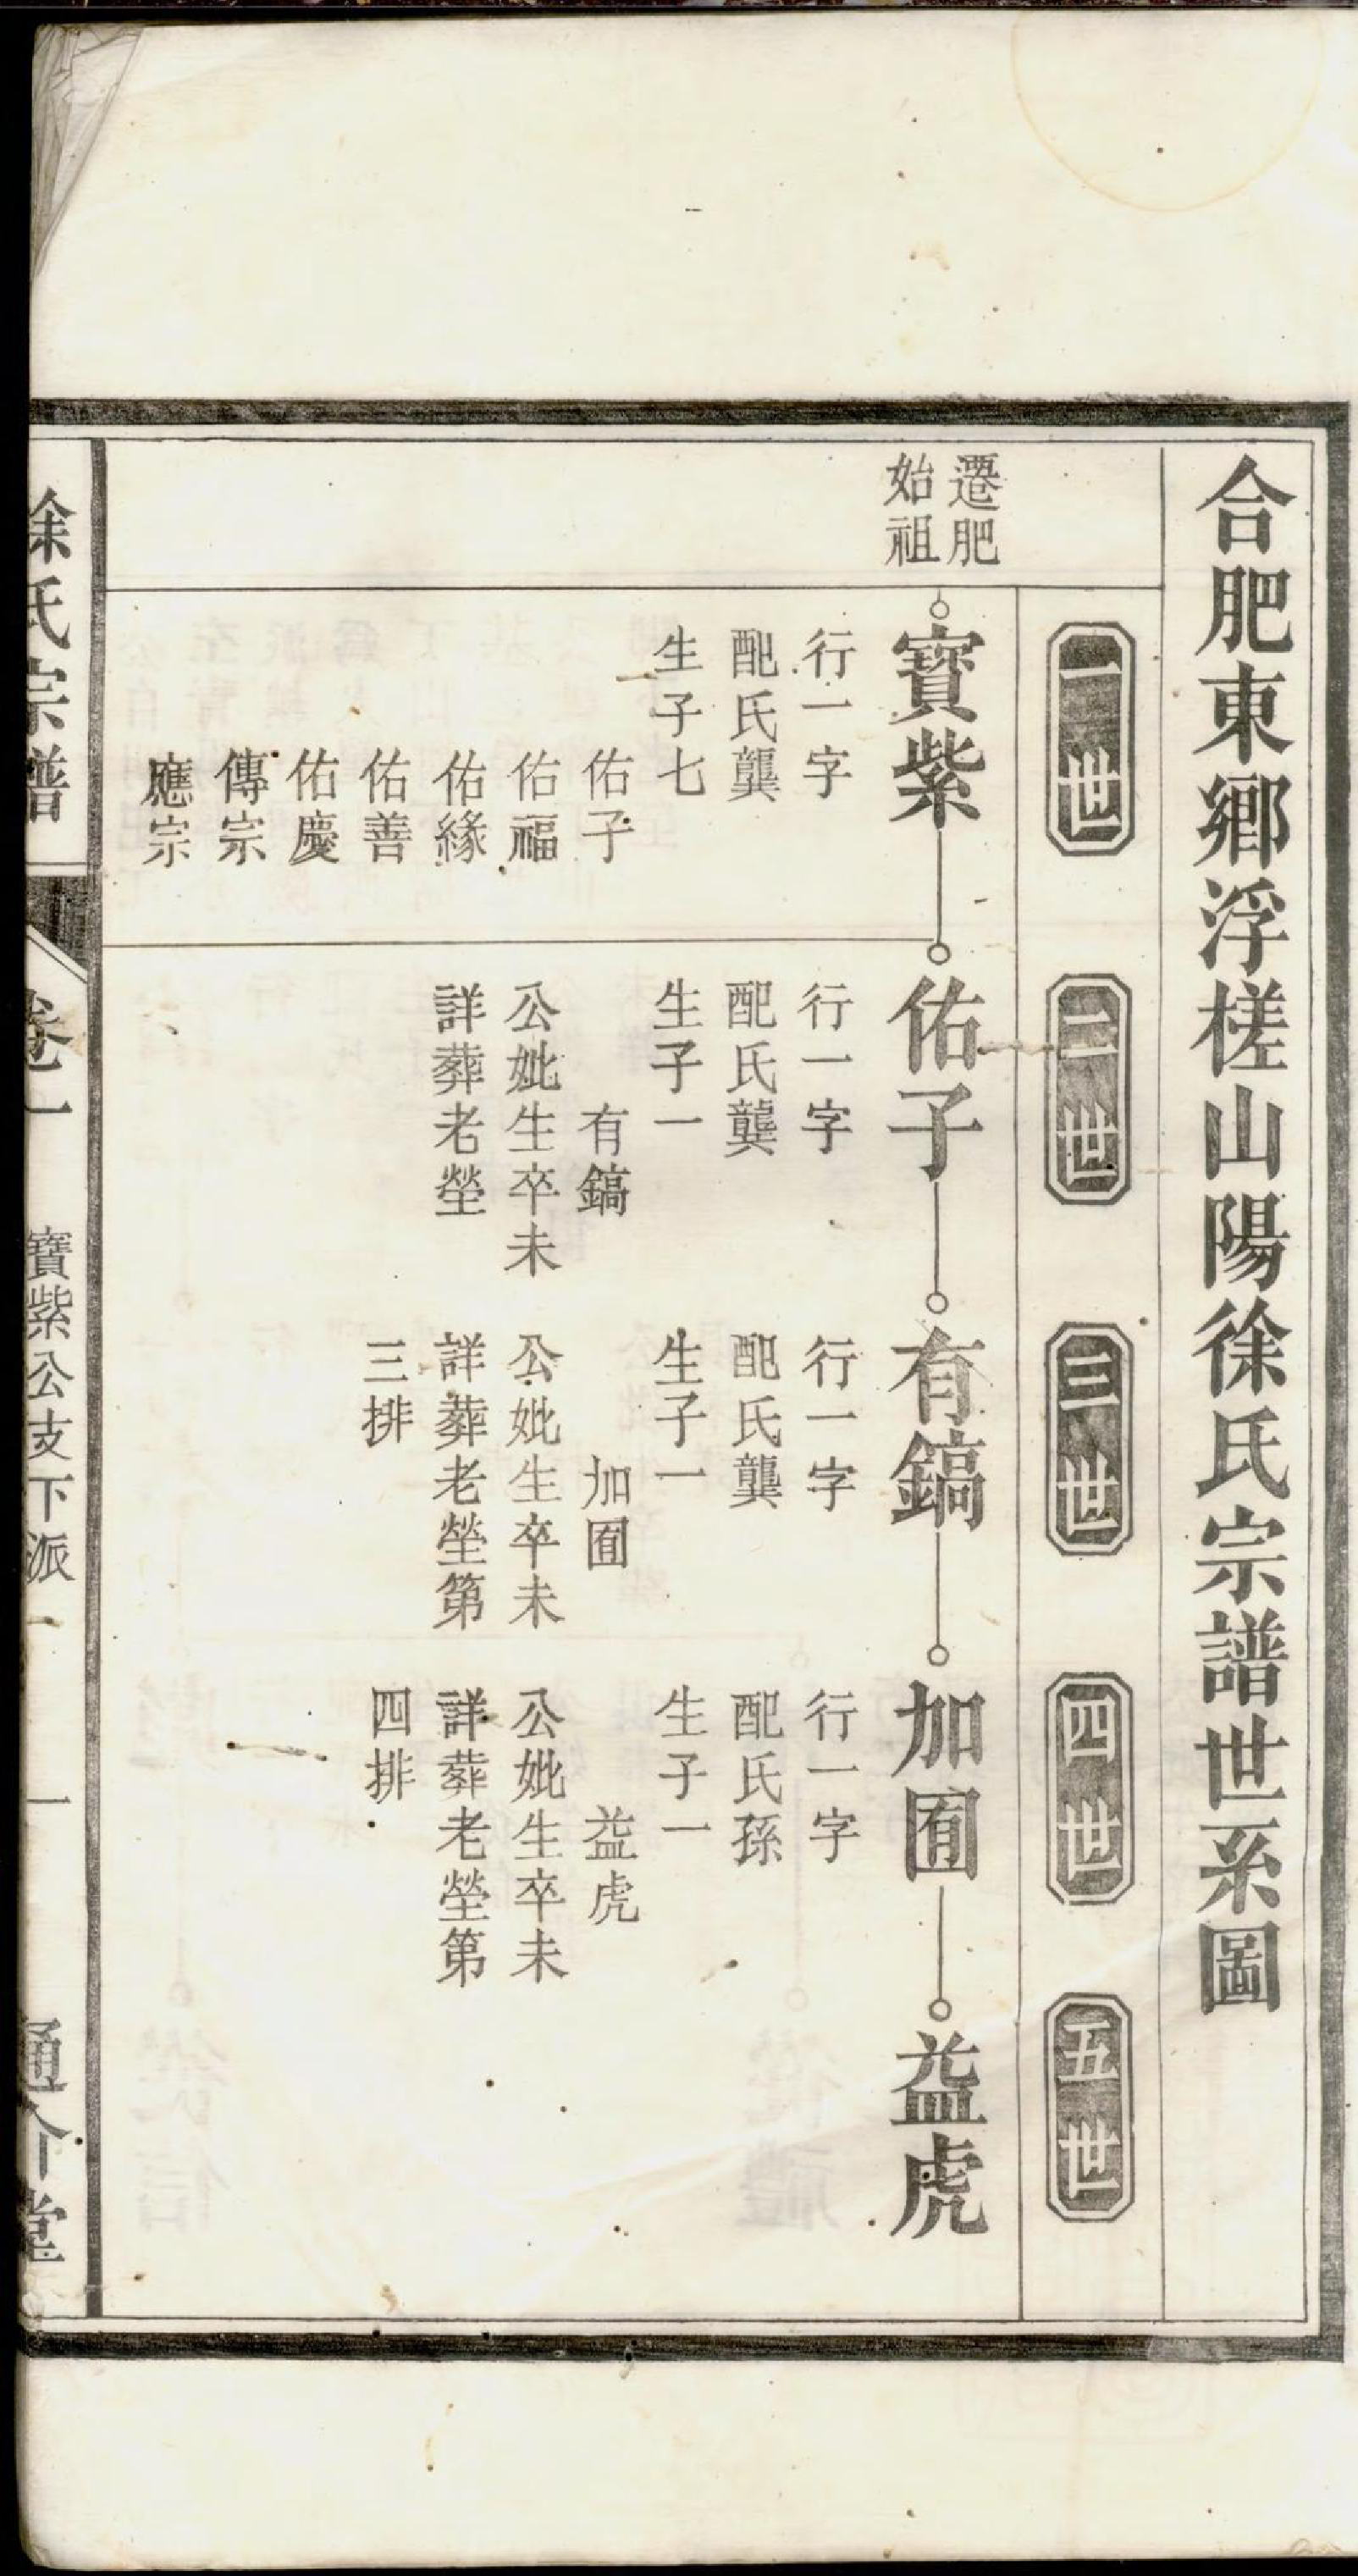 合肥東鄉浮槎山陽徐氏宗譜世系圖
一世
二世
三世
四世
五世
遷肥
始祖
寶紫
佑子
有鎬
加囿
益虎
行一字
配氏龔
生子七
佑子
佑福
佑緣
佑善
佑慶
傳宗
應宗
行一字
配氏龔
生子一
有鎬
公妣生卒未
詳葬老塋
行一字
配氏龔
生子一
加囿
公妣生卒未
詳葬老塋第
三排
行一字
配氏孫
生子一
益虎
公妣生卒未
詳葬老塋第
四排
徐氏宗譜
卷一
寶紫公支下派
一
通介堂